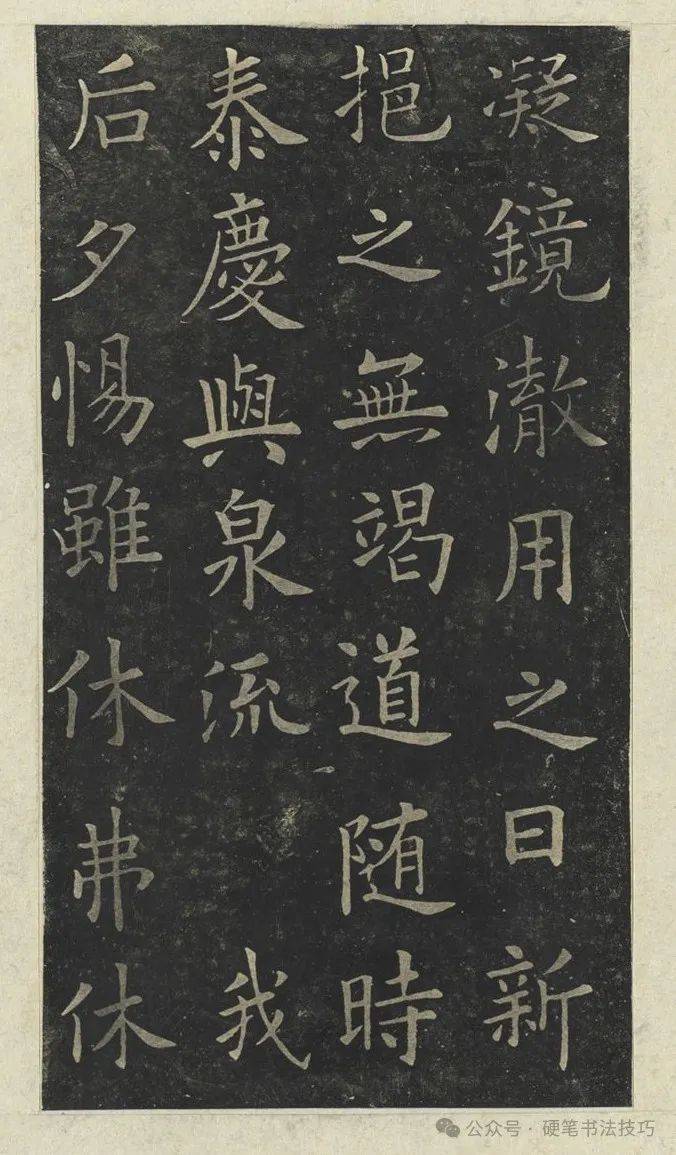 凝鏡澈用之日新
挹之無竭道随時
泰慶與泉流 我
后夕惕雖休弗休
公众号·硬笔书法技巧